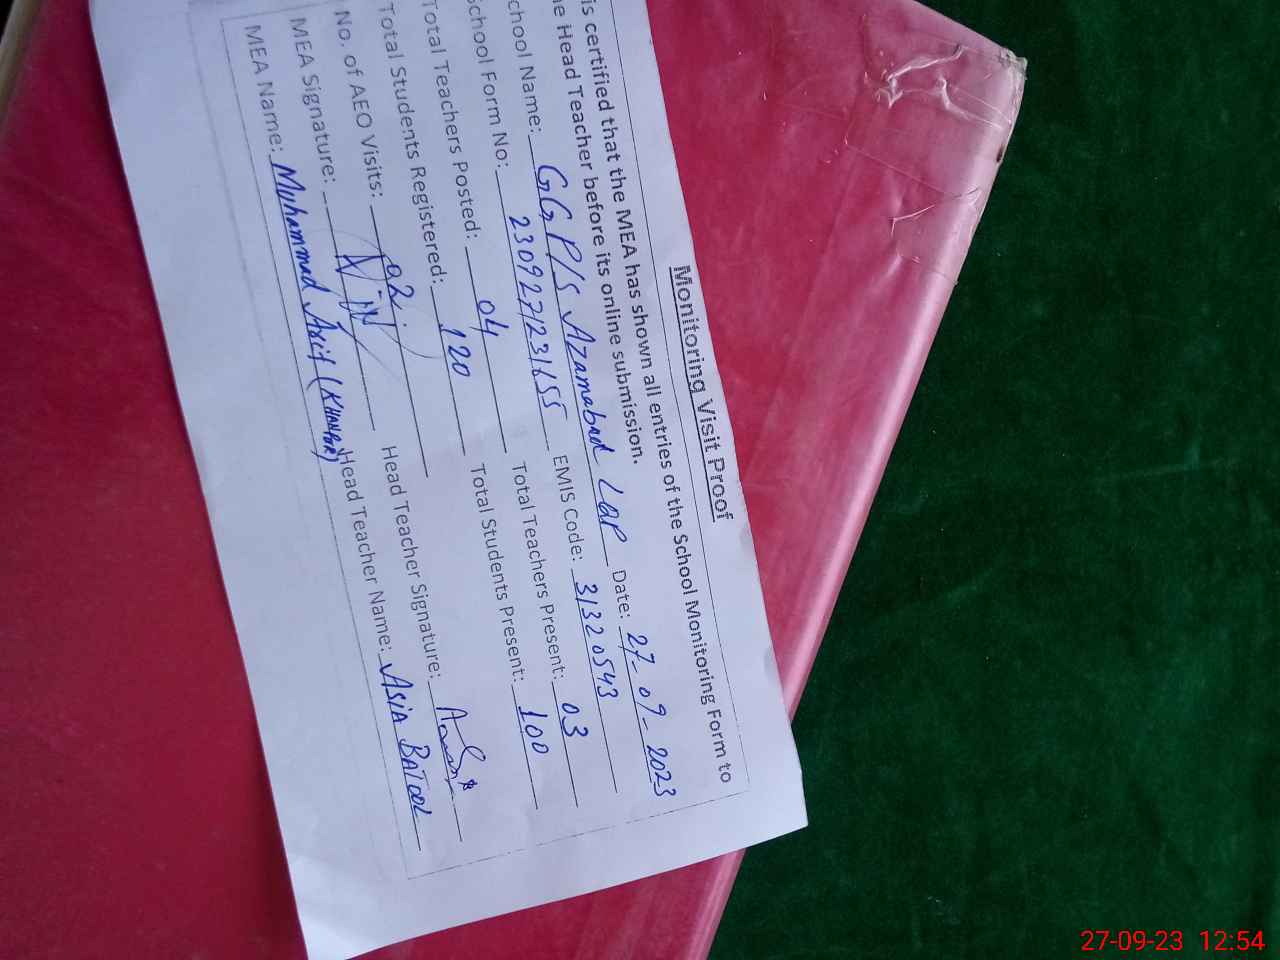 Monitoring Visit Proof
is certified that the MEA has shown all entries of the School Monitoring Form to
e Head Teacher before its online submission.
chool Name: GGP/S Azamabad LaP Date: 27-09-2023
School Form No: 230927231655 EMIS Code: 31320543
Total Teachers Posted: 04 Total Teachers Present: 03
Total Students Registered: 120 Total Students Present: 100
No. of AEO Visits: 02
MEA Signature: Head Teacher Signature:
MEA Name: Muhammad Asif (KHANPUR) Head Teacher Name: ASIA BATOOL
27-09-23 12:54